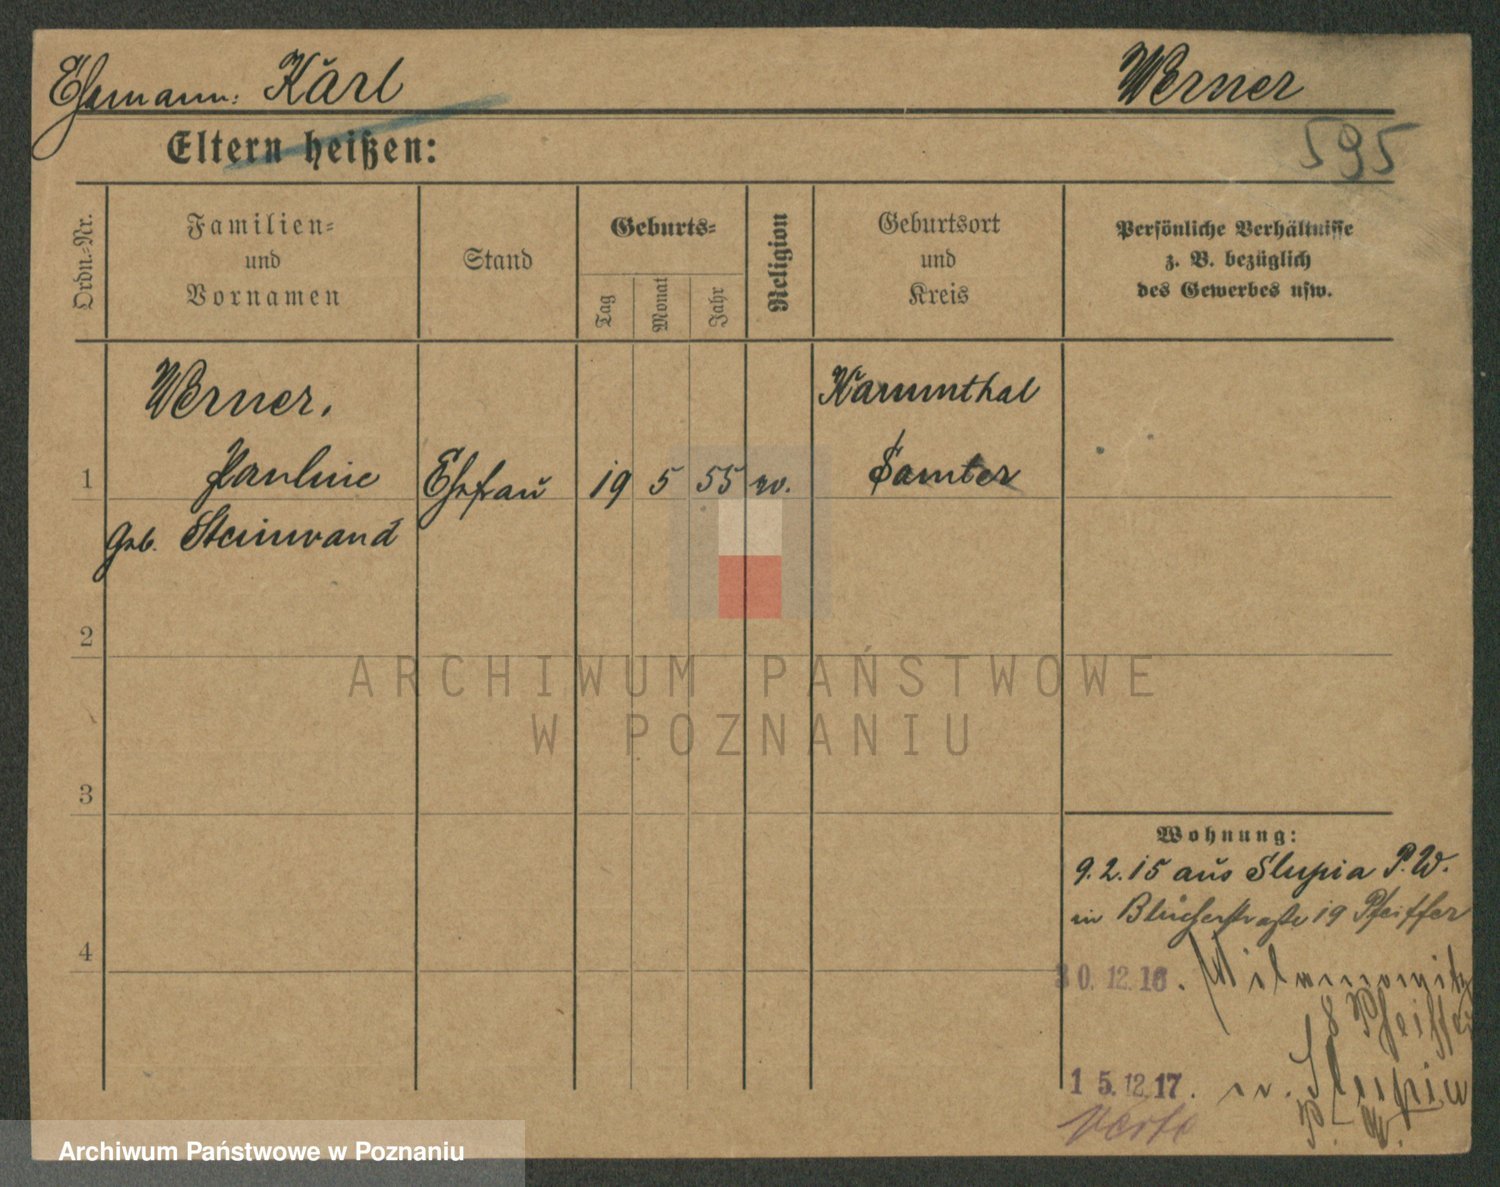 Ehemann: Karl Werner
Eltern heißen:
595
Ordn.-Nr.
Familien-
und
Vornamen
Stand
Geburts-
Tag
Monat
Jahr
Religion
Geburtsort
und
Kreis
Persönliche Verhältnisse
z. B. bezüglich
des Gewerbes usw.
Werner,
Karmnthal
1 Pauline Ehefrau 19 5 55 ev. Samter
geb. Steinwand
2
3
4
Wohnung:
9.2.15 aus Slupia P. W.
in Blücherstraße 19 Pfeiffer
30.12.16.
8 Pfeiffer
15.12.17. n. Slupia
P. W.
verte
ARCHIWUM PAŃSTWOWE
W POZNANIU
Archiwum Państwowe w Poznaniu